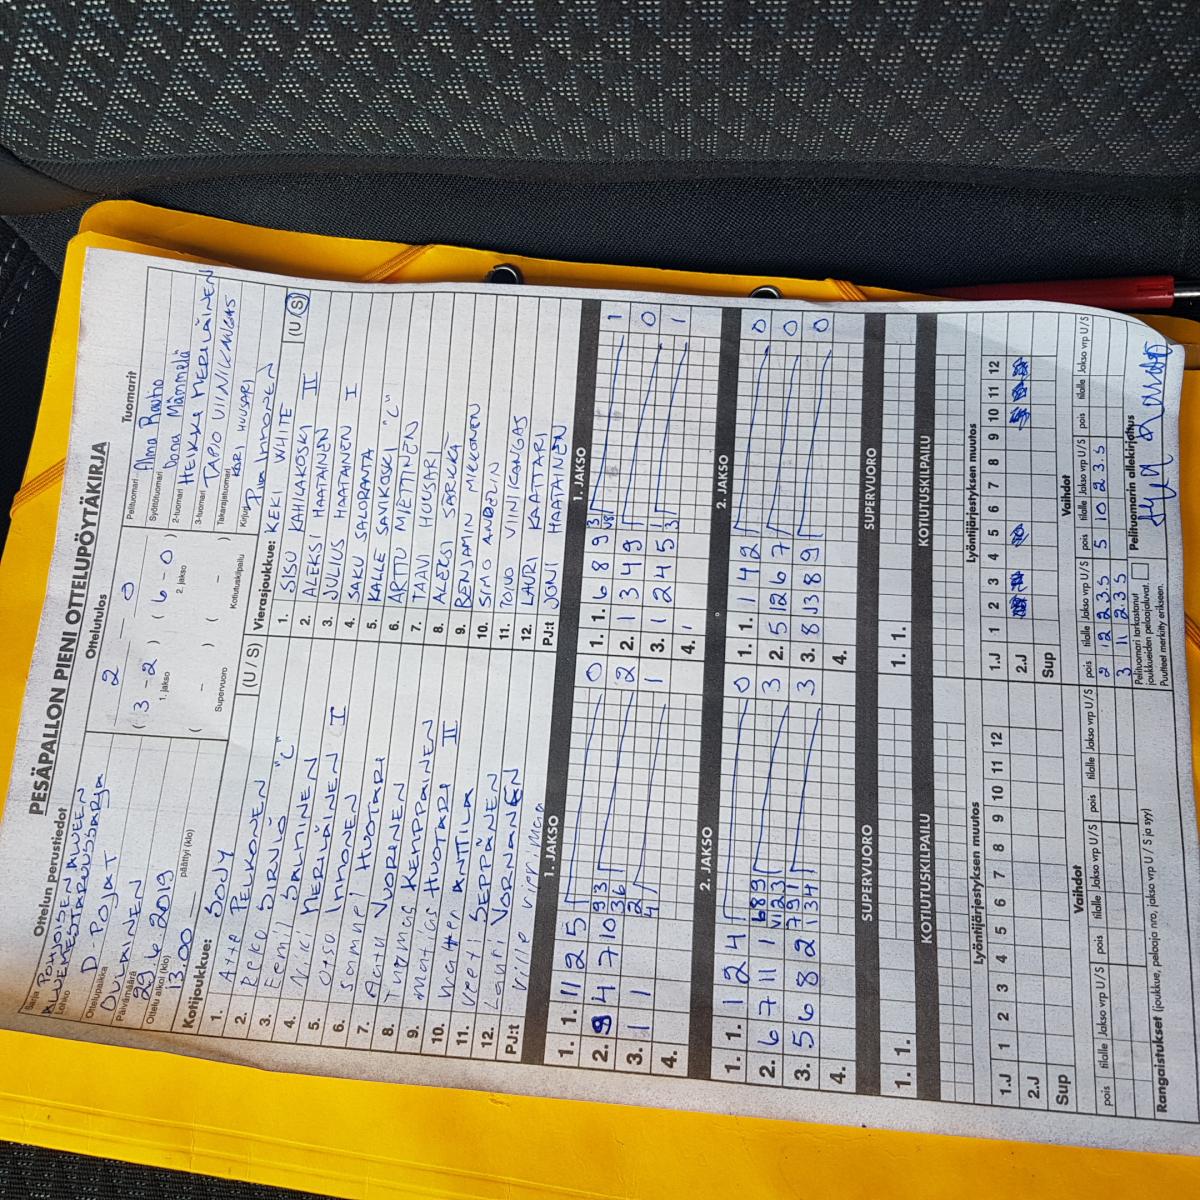 PESÄPALLON PIENI OTTELUPÖYTÄKIRJA
Ottelun perustiedot
Sarja POHJOISEN ALUEEN
Lohko ALUEMESTARUUSSARJA
D-POJAT
Ottelupaikka
OULAINEN
Päivämäärä
29.6.2019
Ottelu alkoi (klo)
13.00
päättyi (klo)
Ottelutulos
2 - 0
( 3 - 2 ) ( 6 - 0 )
1. jakso
2. jakso
( - ) ( - )
Supervuoro
Kotiutuskilpailu
Tuomarit
Pelituomari Alma Rautio
Syöttötuomari Oona Mämmelä
2-tuomari HEIKKI MERILÄINEN
3-tuomari TAPIO VIINIKANGAS
Takarajatuomari KARI HUUSARI
Kirjuri Piia Innonen
Kotijoukkue: SOJY
(U / S)
1. Atte PELKONEN
2. Eeku SIRNIÖ
3. Eemil SALMINEN "C"
4. Niki MERILÄINEN
5. Otso Innonen I
6. Samuel HUOTARI
7. Aatu VUORINEN
8. Tuomas KEMPPAINEN
9. Matias HUOTARI
10. ANTTILA II
11. Veeti SEPPÄNEN
12. Lauri VORNANEN
PJ:t Ville
Vierasjoukkue: KEKI WHITE
(U / S)
1. SISU KAHILAKOSKI
2. ALEKSI HAATAINEN II
3. JULIUS HAATAINEN
4. SAKU SALORANTA I
5. KALLE SAVIKOSKI "C"
6. ARTTU MIETTINEN
7. TAAVI HUUSARI
8. ALEKSI SÄRKKÄ
9. BENJAMIN MIKKONEN
10. SIMO
11. TOIVO VIINIKANGAS
12. LAURI KAATTARI
PJ:t JONI HAATAINEN
1. JAKSO
1. 1. 11 2 5 0
2. 9 4 7 10 2
3. 1 1 1
4.
1. JAKSO
1. 1. 6 8 9 3 1
2. 1 3 4 9 0
3. 1 2 4 5 1
4. 1
2. JAKSO
1. 1. 1 2 4 0
2. 6 7 11 1 3
3. 5 6 8 2 3
4.
2. JAKSO
1. 1. 1 4 2 0
2. 5 12 6 7 0
3. 8 J 3 8 9 0
4.
SUPERVUORO
1. 1.
SUPERVUORO
1. 1.
KOTIUTUSKILPAILU
KOTIUTUSKILPAILU
Lyöntijärjestyksen muutos
1.J 1 2 3 4 5 6 7 8 9 10 11 12
2.J
Sup
Lyöntijärjestyksen muutos
1.J 1 2 3 4 5 6 7 8 9 10 11 12
2.J
Sup
Vaihdot
pois tilalle Jakso vrp U/S pois tilalle Jakso vrp U/S pois tilalle Jakso vrp U/S
Vaihdot
pois tilalle Jakso vrp U/S pois tilalle Jakso vrp U/S pois tilalle Jakso vrp U/S
2 12 2 3. S 5 10 2 3. S
3 11 2. 3 S
Rangaistukset (joukkue, pelaaja nro, jakso vrp U / S ja syy)
Pelituomari tarkastanut
joukkueiden pelaajaluvat.
Puutteet merkitty erikseen.
Pelituomarin allekirjoitus